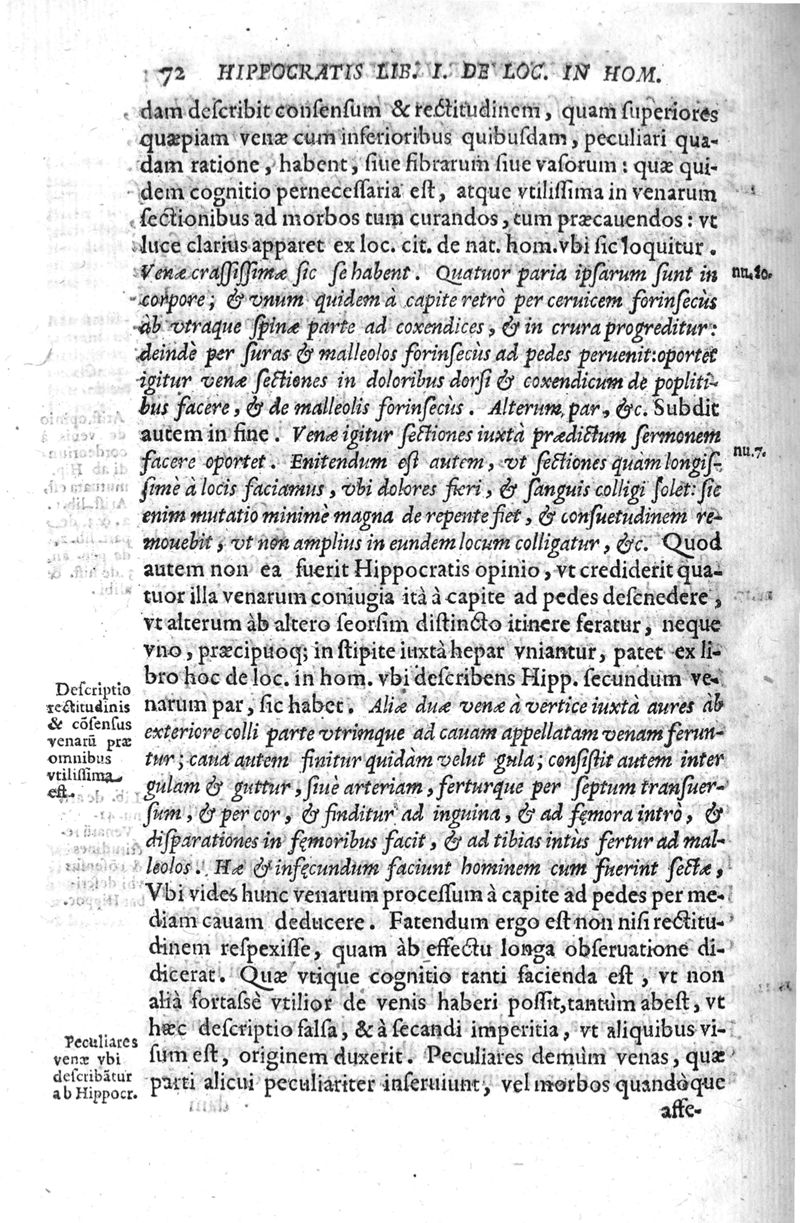 72 HIPPOCRATIS LIB. I. DE LOC. IN HOM.
dam deſcribit conſenſum & rectitudinem, quam ſuperiores
quæpiam venæ cum inferioribus quibuſdam, peculiari qua-
dam ratione, habent, ſiue fibrarum ſiue vaſorum: quæ qui-
dem cognitio perneceſſaria eſt, atque vtiliſſima in venarum
ſectionibus ad morbos tum curandos, tum præcauendos: vt
luce clarius apparet ex loc. cit. de nat. hom. vbi ſic loquitur.
Venæ craſſiſſimæ ſic ſe habent. Quatuor paria ipſarum ſunt in
nu. 10.
corpore; & vnum quidem à capite retrò per ceruicem forinſecùs
àb vtraque ſpinæ parte ad coxendices, & in crura progreditur:
deindè per ſuras & malleolos forinſecùs ad pedes peruenit: oportet
igitur venæ ſectiones in doloribus dorſi & coxendicum de popliti-
bus facere, & de malleolis forinſecùs. Alterum par, &c. Subdit
autem in fine. Venæ igitur ſectiones iuxtà prædictum ſermonem
nu. 7.
facere oportet. Enitendum eſt autem, vt ſectiones quàm longiſ-
ſimè à locis faciamus, vbi dolores fieri, & ſanguis colligi ſolet: ſic
enim mutatio minimè magna de repente fiet, & conſuetudinem re-
mouebit, vt non amplius in eundem locum colligatur, &c. Quod
autem non ea fuerit Hippocratis opinio, vt crediderit qua-
tuor illa venarum coniugia ità à capite ad pedes deſcnedere,
vt alterum àb altero ſeorſim diſtincto itinere feratur, neque
vno, præcipuoq; in ſtipite iuxtà hepar vniantur, patet ex li-
bro hoc de loc. in hom. vbi deſcribens Hipp. ſecundum ve-
Deſcriptio
rectitudinis
& cõſenſus
venarū præ
omnibus
vtiliſſima
eſt.
narum par, ſic habet. Aliæ duæ venæ à vertice iuxtà aures àb
exteriore colli parte vtrimque ad cauam appellatam venam ferun-
tur; caua autem finitur quidàm velut gula; conſiſtit autem inter
gulam & guttur, ſiuè arteriam, ferturque per ſeptum tranſuer-
ſum, & per cor, & finditur ad inguina, & ad fęmora intrò, &
diſparationes in fęmoribus facit, & ad tibias intùs fertur ad mal-
leolos. Hæ & infęcundum faciunt hominem cum fuerint ſectæ,
Vbi vides hunc venarum proceſſum à capite ad pedes per me-
diam cauam deducere. Fatendum ergo eſt non niſi rectitu-
dinem reſpexiſſe, quam àb effectu longa obſeruatione di-
dicerat. Quæ vtique cognitio tanti facienda eſt, vt non
alià fortaſsè vtilior de venis haberi poſſit, tantùm abeſt, vt
hæc deſcriptio falſa, & à ſecandi imperitia, vt aliquibus vi-
ſum eſt, originem duxerit. Peculiares demùm venas, quæ
Peculiares
venæ vbi
deſcribãtur
ab Hippocr.
parti alicui peculiariter inſeruiunt, vel morbos quandòque
affe-